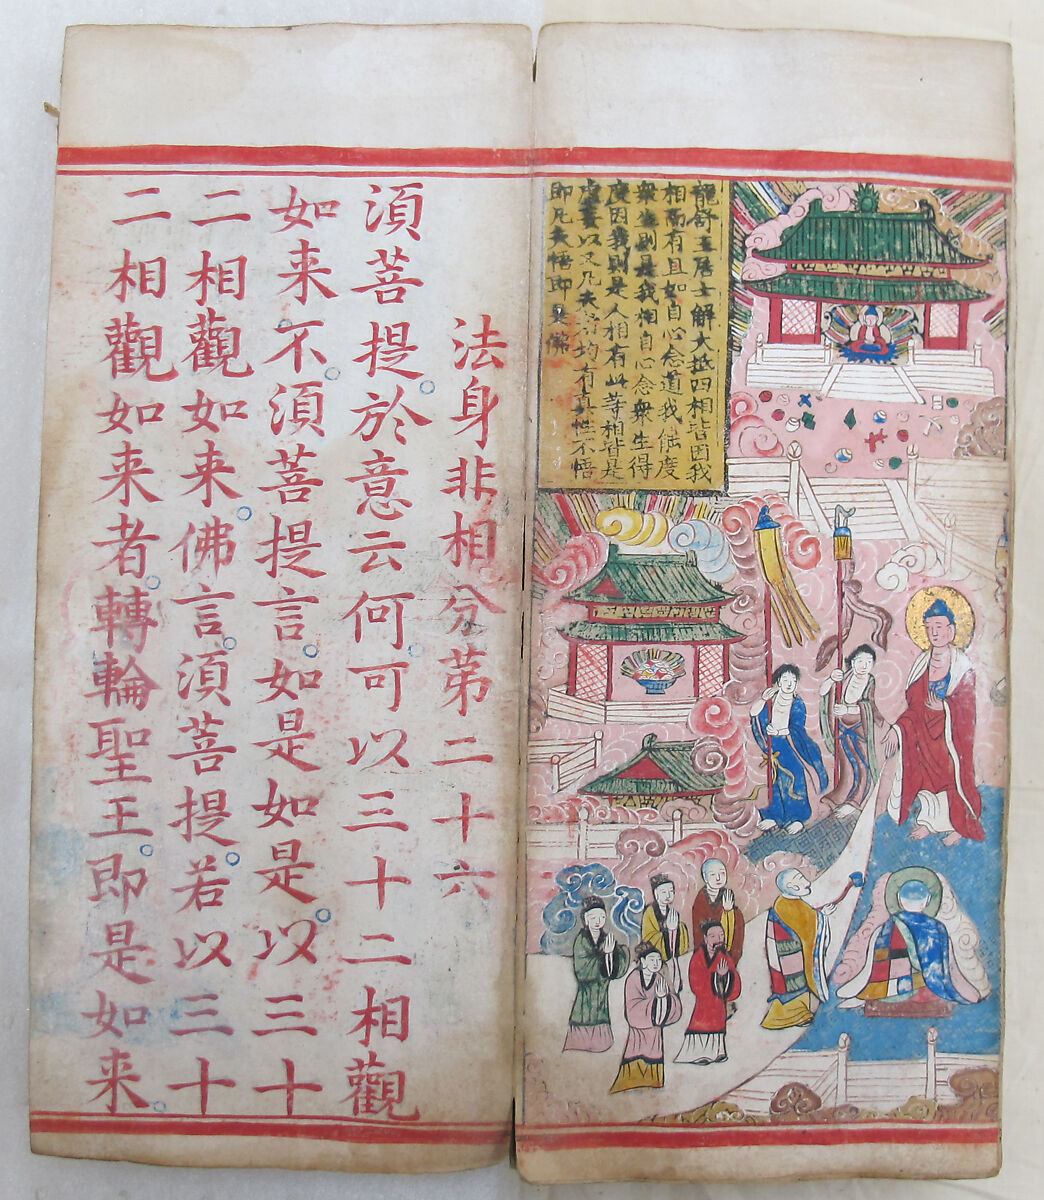 龍舒王居士解大抵四相皆因我
相而有且如自心念道我能度
衆生則是我相自心念衆生得
度因我則是人相有此等相皆是
妄以又凡夫均有真性不悟
即凡夫悟即是佛
法身非相分苐二十六
湏菩提。於意云何。可以三十二相觀
如来。不。湏菩提言。如是如是。以三十
二相觀如来。佛言。湏菩提。若以三十
二相觀如来者。轉輪聖王。即是如来。